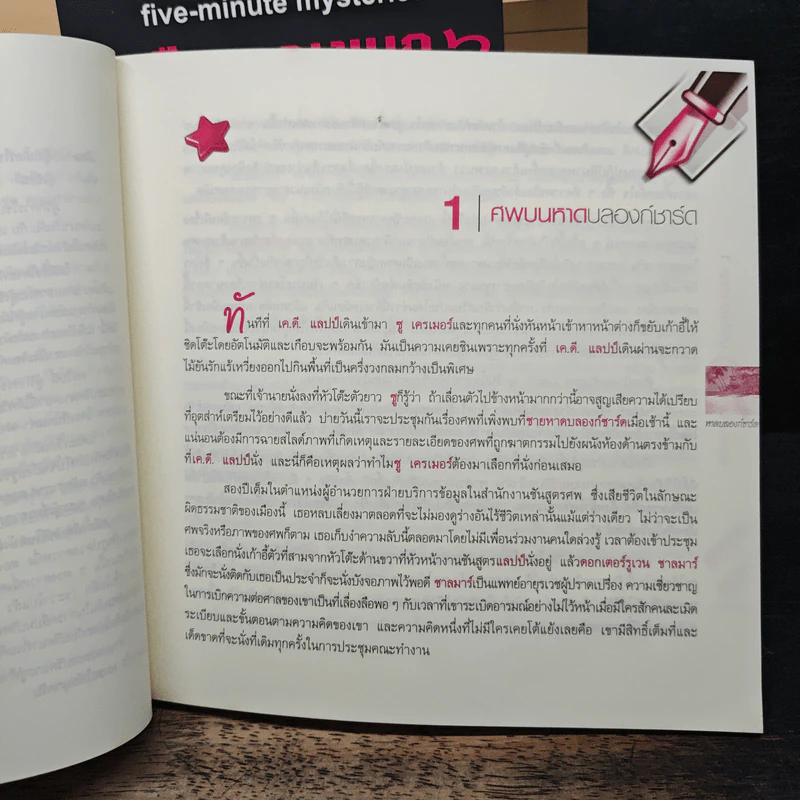 five-minute mysteries
1 ศพบนหาดบลองก์ชาร์ด
ทันทีที่ เค.ดี. แลปป์เดินเข้ามา ซู เครเมอร์และทุกคนที่นั่งหันหน้าเข้าหาหน้าต่างก็ขยับเก้าอี้ให้
ชิดโต๊ะโดยอัตโนมัติและเกือบจะพร้อมกัน มันเป็นความเคยชินเพราะทุกครั้งที่ เค.ดี. แลปป์เดินผ่านจะกวาด
ไม้ยันรักแร้เหวี่ยงออกไปกินพื้นที่เป็นครึ่งวงกลมกว้างเป็นพิเศษ
ขณะที่เจ้านายนั่งลงที่หัวโต๊ะตัวยาว ซูก็รู้ว่า ถ้าเลื่อนตัวไปข้างหน้ามากกว่านี้อาจสูญเสียความได้เปรียบ
ที่อุตส่าห์เตรียมไว้อย่างดีแล้ว บ่ายวันนี้เราจะประชุมกันเรื่องศพที่เพิ่งพบที่ชายหาดบลองก์ชาร์ดเมื่อเช้านี้ และ
แน่นอนต้องมีการฉายสไลด์ภาพที่เกิดเหตุและรายละเอียดของศพที่ถูกฆาตกรรมไปยังผนังห้องด้านตรงข้ามกับ
ที่เค.ดี. แลปป์นั่ง และนี่ก็คือเหตุผลว่าทำไมซู เครเมอร์ต้องมาเลือกที่นั่งก่อนเสมอ
สองปีเต็มในตำแหน่งผู้อำนวยการฝ่ายบริการข้อมูลในสำนักงานชันสูตรศพ ซึ่งเสียชีวิตในลักษณะ
ผิดธรรมชาติของเมืองนี้ เธอหลบเลี่ยงมาตลอดที่จะไม่มองดูร่างอันไร้ชีวิตเหล่านั้นแม้แต่ร่างเดียว ไม่ว่าจะเป็น
ศพจริงหรือภาพของศพก็ตาม เธอเก็บงำความลับนี้ตลอดมาโดยไม่มีเพื่อนร่วมงานคนใดล่วงรู้ เวลาต้องเข้าประชุม
เธอจะเลือกนั่งเก้าอี้ตัวที่สามจากหัวโต๊ะด้านขวาที่หัวหน้างานชันสูตรแลปป์นั่งอยู่ แล้วดอกเตอร์รูเวน ชาลมาร์
ซึ่งมักจะนั่งติดกับเธอเป็นประจำก็จะนั่งบังจอภาพไว้พอดี ชาลมาร์เป็นแพทย์อายุรเวชผู้ปราดเปรื่อง ความเชี่ยวชาญ
ในการเบิกความต่อศาลของเขาเป็นที่เลื่องลือพอ ๆ กับเวลาที่เขาระเบิดอารมณ์อย่างไม่ไว้หน้าเมื่อมีใครสักคนละเมิด
ระเบียบและขั้นตอนตามความคิดของเขา และความคิดหนึ่งที่ไม่มีใครเคยโต้แย้งเลยคือ เขามีสิทธิ์เต็มที่และ
เด็ดขาดที่จะนั่งที่เดิมทุกครั้งในการประชุมคณะทำงาน
หาดบลองก์ชาร์ด